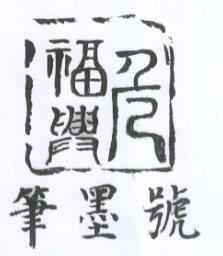 福興
筆墨號